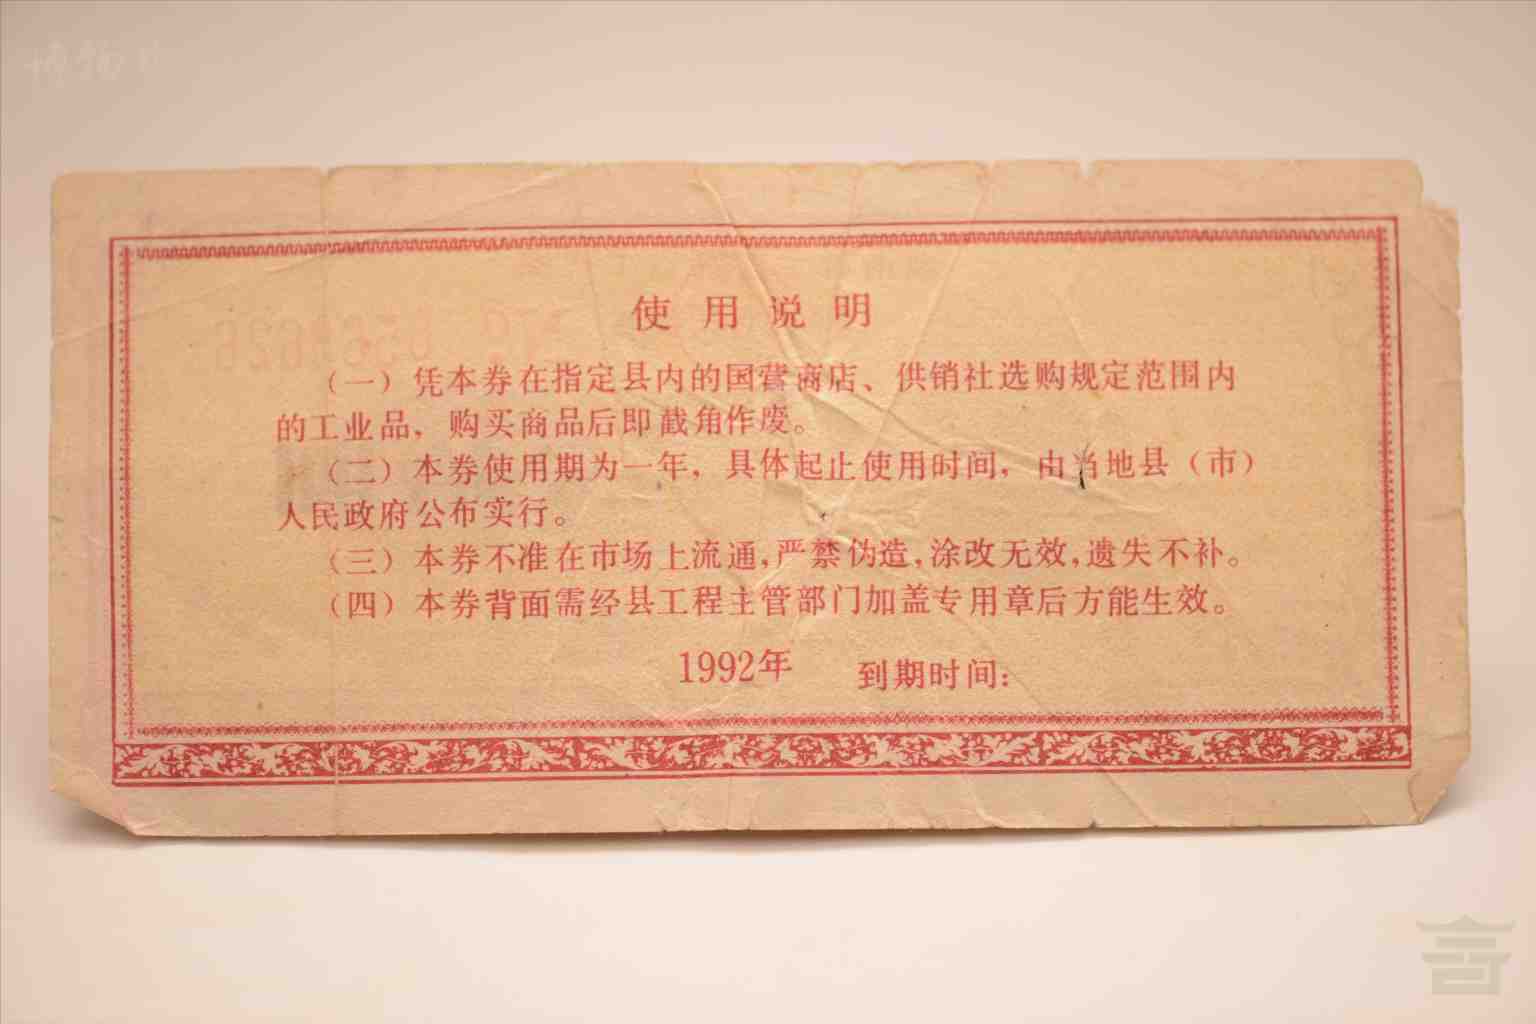 使用说明
（一）凭本券在指定县内的国营商店、供销社选购规定范围内
的工业品，购买商品后即截角作废。
（二）本券使用期为一年，具体起止使用时间，由当地县（市）
人民政府公布实行。
（三）本券不准在市场上流通，严禁伪造，涂改无效，遗失不补。
（四）本券背面需经县工程主管部门加盖专用章后方能生效。
1992年 到期时间：